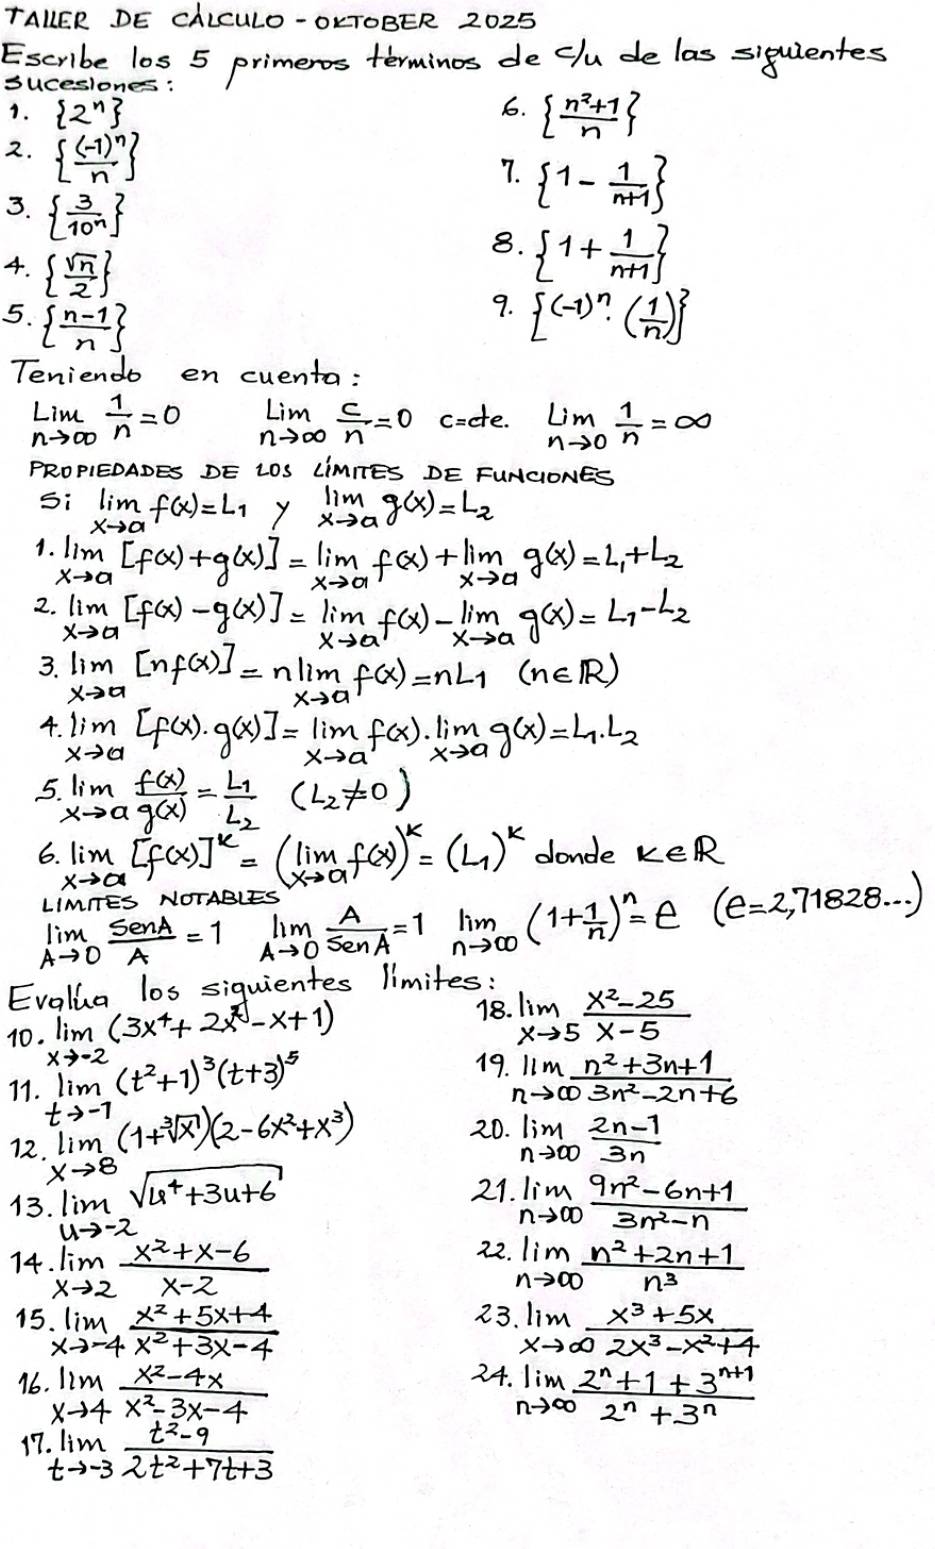 TALLER DE CÁLCULO - OKTOBER 2025
Escribe los 5 primeros términos de c/u de las siguientes
sucesiones:
1. {2ⁿ}
2. {(-1)ⁿ/n}
3. {3/10ⁿ}
4. {√n/2}
5. {n-1/n}
6. {n²+1/n}
7. {1 - 1/n+1}
8. {1 + 1/n+1}
9. {(-1)ⁿ. (1/n)}
Teniendo en cuenta:
Lim n→∞ 1/n = 0 Lim n→∞ c/n = 0 c=cte. Lim n→0 1/n = ∞
PROPIEDADES DE LOS LÍMITES DE FUNCIONES
Si lim x→a f(x)=L₁ y lim x→a g(x)=L₂
1. lim x→a [f(x)+g(x)] = lim x→a f(x) + lim x→a g(x) = L₁+L₂
2. lim x→a [f(x)-g(x)] = lim x→a f(x) - lim x→a g(x) = L₁-L₂
3. lim x→a [nf(x)] = n lim x→a f(x) = nL₁ (n∈ℝ)
4. lim x→a [f(x).g(x)] = lim x→a f(x). lim x→a g(x) = L₁.L₂
5. lim x→a f(x)/g(x) = L₁/L₂ (L₂≠0)
6. lim x→a [f(x)]ᴷ = (lim x→a f(x))ᴷ = (L₁)ᴷ donde K∈ℝ
LIMITES NOTABLES
lim A→0 SenA/A = 1 lim A→0 A/SenA = 1 lim n→∞ (1+1/n)ⁿ = e (e=2,71828...)
Evalúa los siguientes límites:
10. lim x→-2 (3x⁴+2x²-x+1)
11. lim t→-1 (t²+1)³(t+3)⁵
12. lim x→8 (1+∛x)(2-6x²+x³)
13. lim u→-2 √u⁴+3u+6
14. lim x→2 x²+x-6/x-2
15. lim x→-4 x²+5x+4/x²+3x-4
16. lim x→4 x²-4x/x²-3x-4
17. lim t→-3 t²-9/2t²+7t+3
18. lim x→5 x²-25/x-5
19. lim n→∞ n²+3n+1/3n²-2n+6
20. lim n→∞ 2n-1/3n
21. lim n→∞ 9n²-6n+1/3n²-n
22. lim n→∞ n²+2n+1/n³
23. lim x→∞ x³+5x/2x³-x²+4
24. lim n→∞ 2ⁿ+1+3ⁿ⁺¹/2ⁿ+3ⁿ